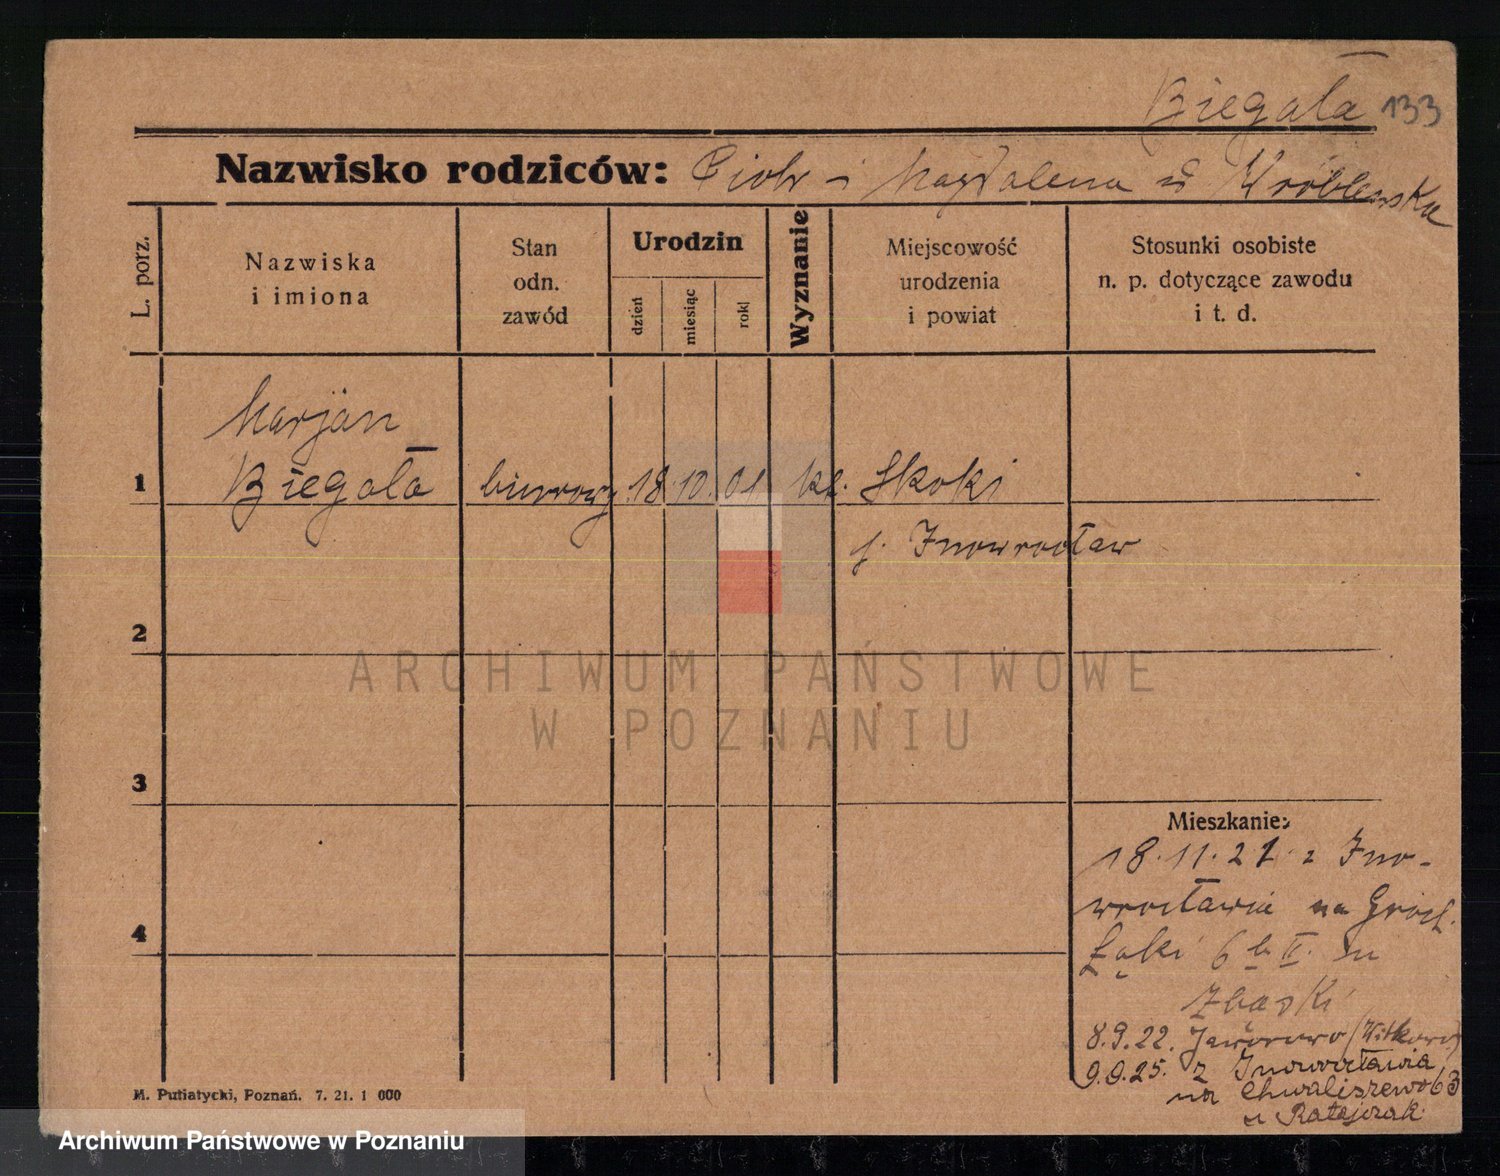 Biegała 133
Nazwisko rodziców: Piotr i Magdalena u Wróblewska
L. porz.
Nazwiska
i imiona
Stan
odn.
zawód
Urodzin
dzień
miesiąc
rok
Wyznanie
Miejscowość
urodzenia
i powiat
Stosunki osobiste
n. p. dotyczące zawodu
i t. d.
Marjan
1 Biegała biurowy 18. 10. 01 kt. Skoki
Inowrocław
2
ARCHIWUM PAŃSTWOWE
W POZNANIU
3
Mieszkanie:
18.11.21 z Ino-
wrocławia na Groch.
4 Łąki 6 II.
Zbąski
8.9.22. Jaworowo (Witkowo)
9.9.25. z Inowrocławia
na Chwaliszewo 63
u Ratajczak
M. Putiatycki, Poznań. 7. 21. 1 000
Archiwum Państwowe w Poznaniu